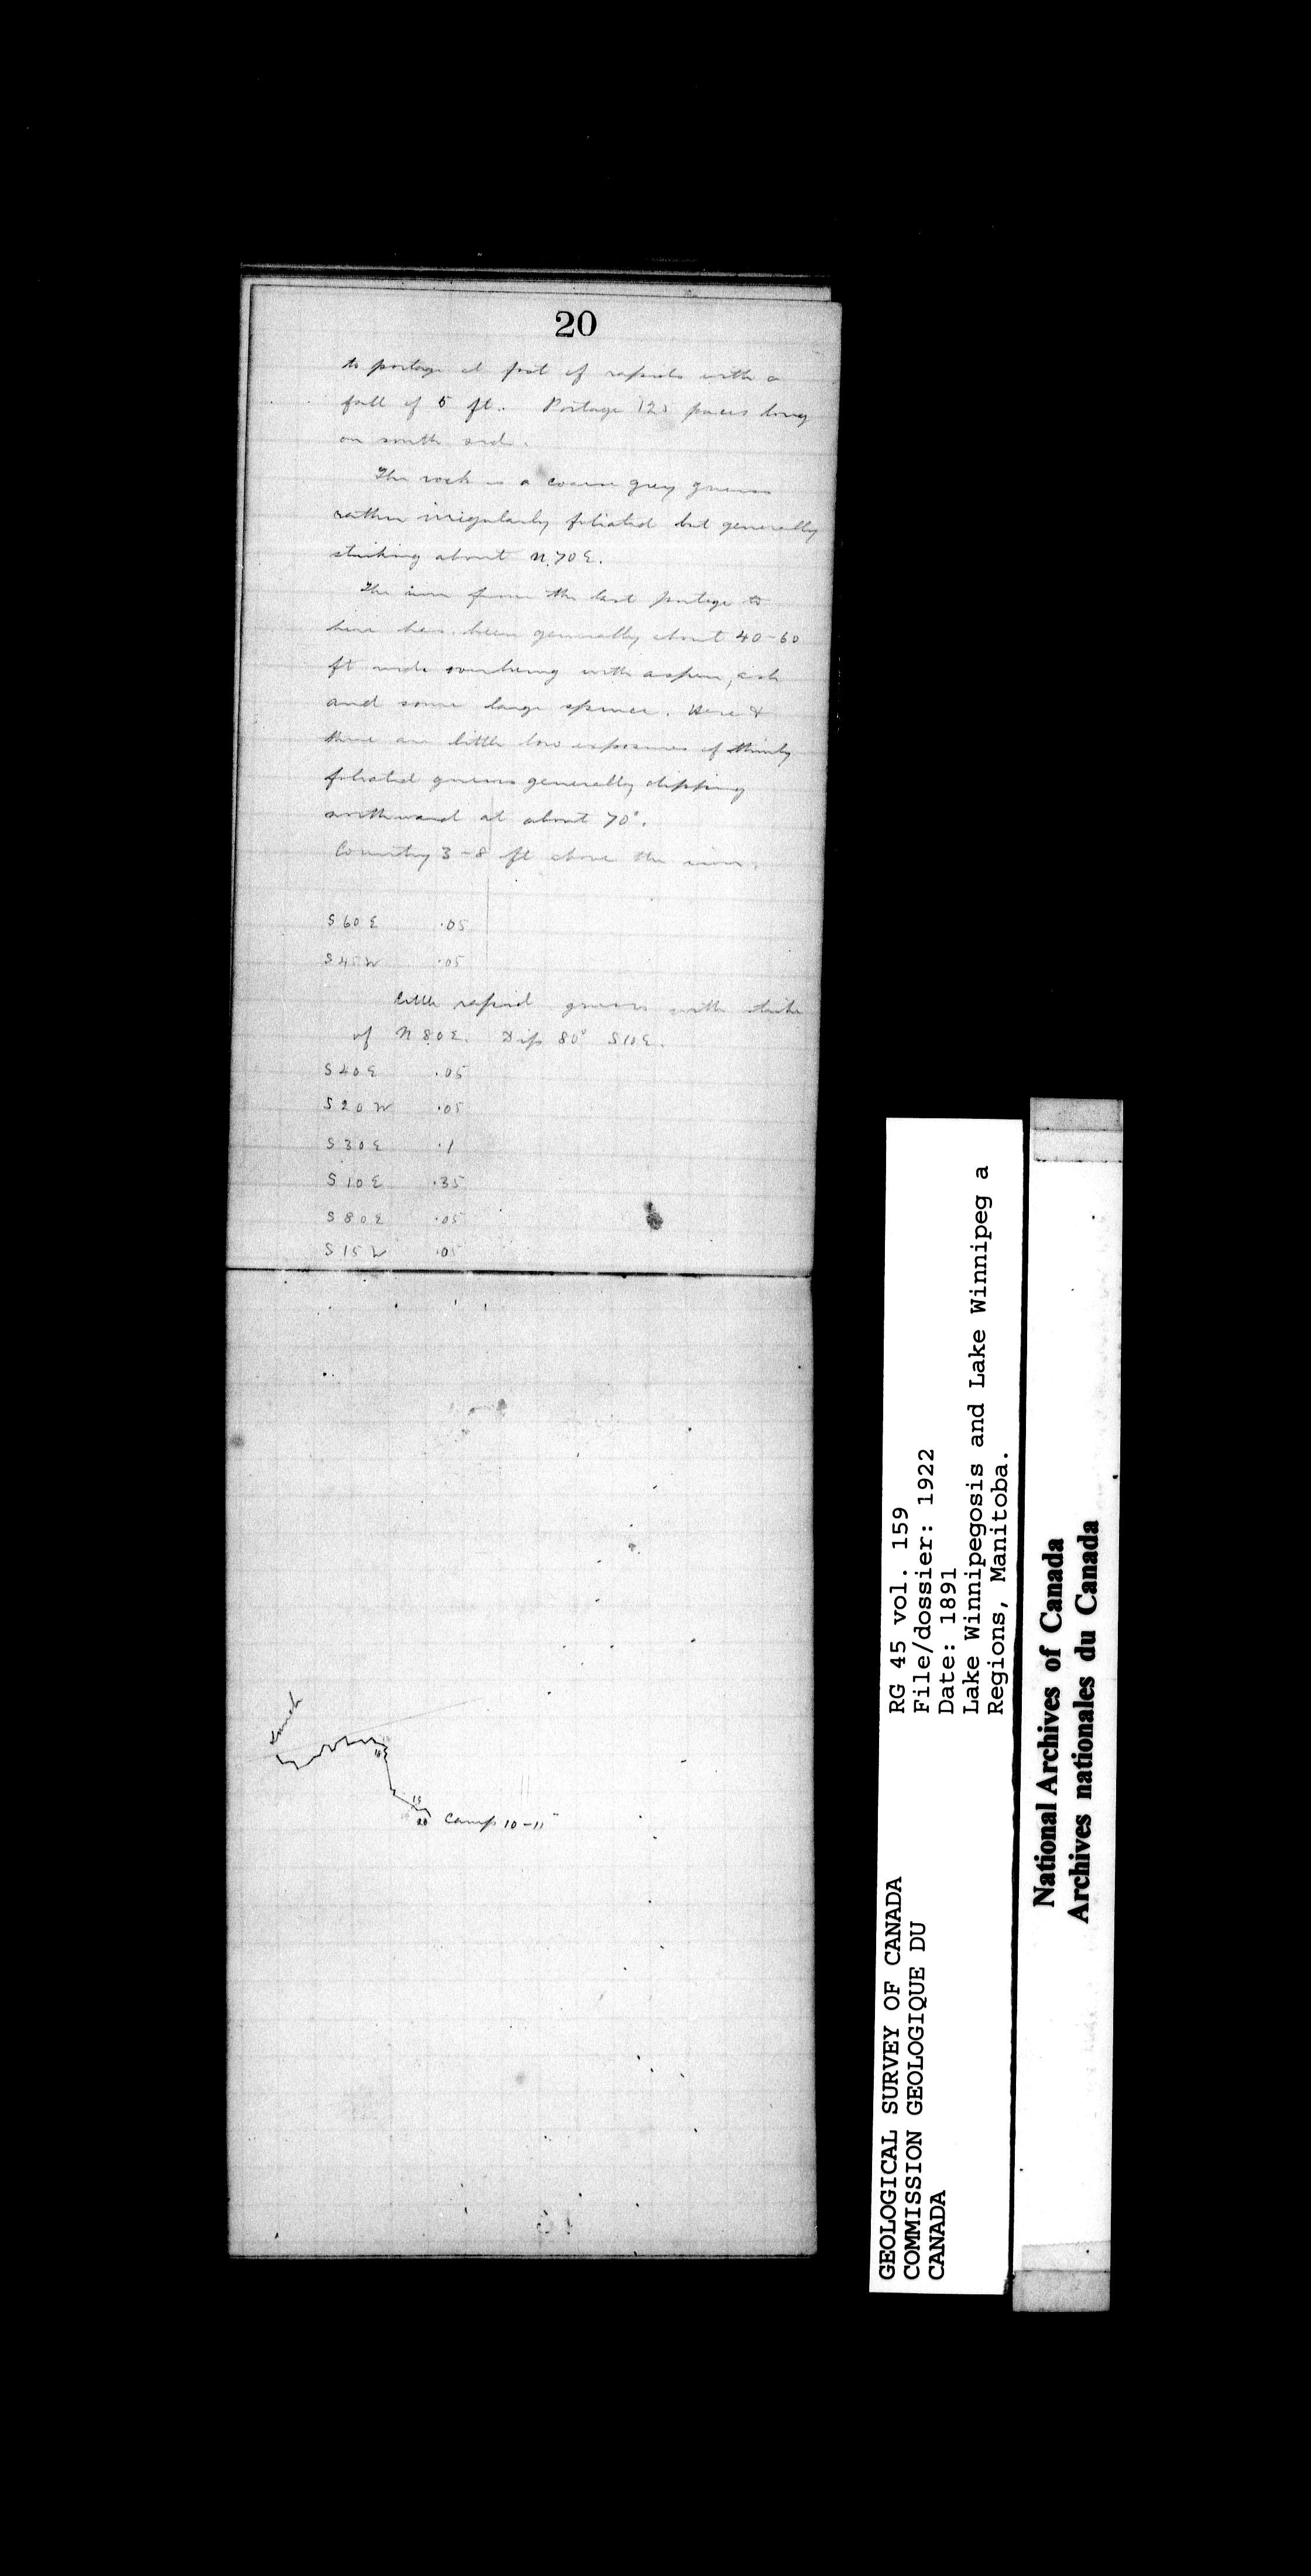 20
to portage at foot of rapids with a
fall of 5 ft. Portage 125 paces long
on south side.
The rock is a coarse grey gneiss
rather irregularly foliated but generally
striking about N.70E.
The river from the last portage to
here has been generally about 40-60
ft wide overhung with aspen, ash
and some large spruce. Here &
there are little low exposures of thinly
foliated gneiss generally dipping
southward at about 70°.
Country 3-8 ft above the river.
S60E .05
S45W .05
Little rapid gneiss with strike
of N80E. Dip 80° S10E.
S40E .05
S20W .05
S30E .1
S10E .35
S80E .05
S15W .05
18
19
20 Camp 10-11
GEOLOGICAL SURVEY OF CANADA
COMMISSION GEOLOGIQUE DU
CANADA
RG 45 vol. 159
File/dossier: 1922
Date: 1891
Lake Winnipegosis and Lake Winnipeg a
Regions, Manitoba.
National Archives of Canada
Archives nationales du Canada